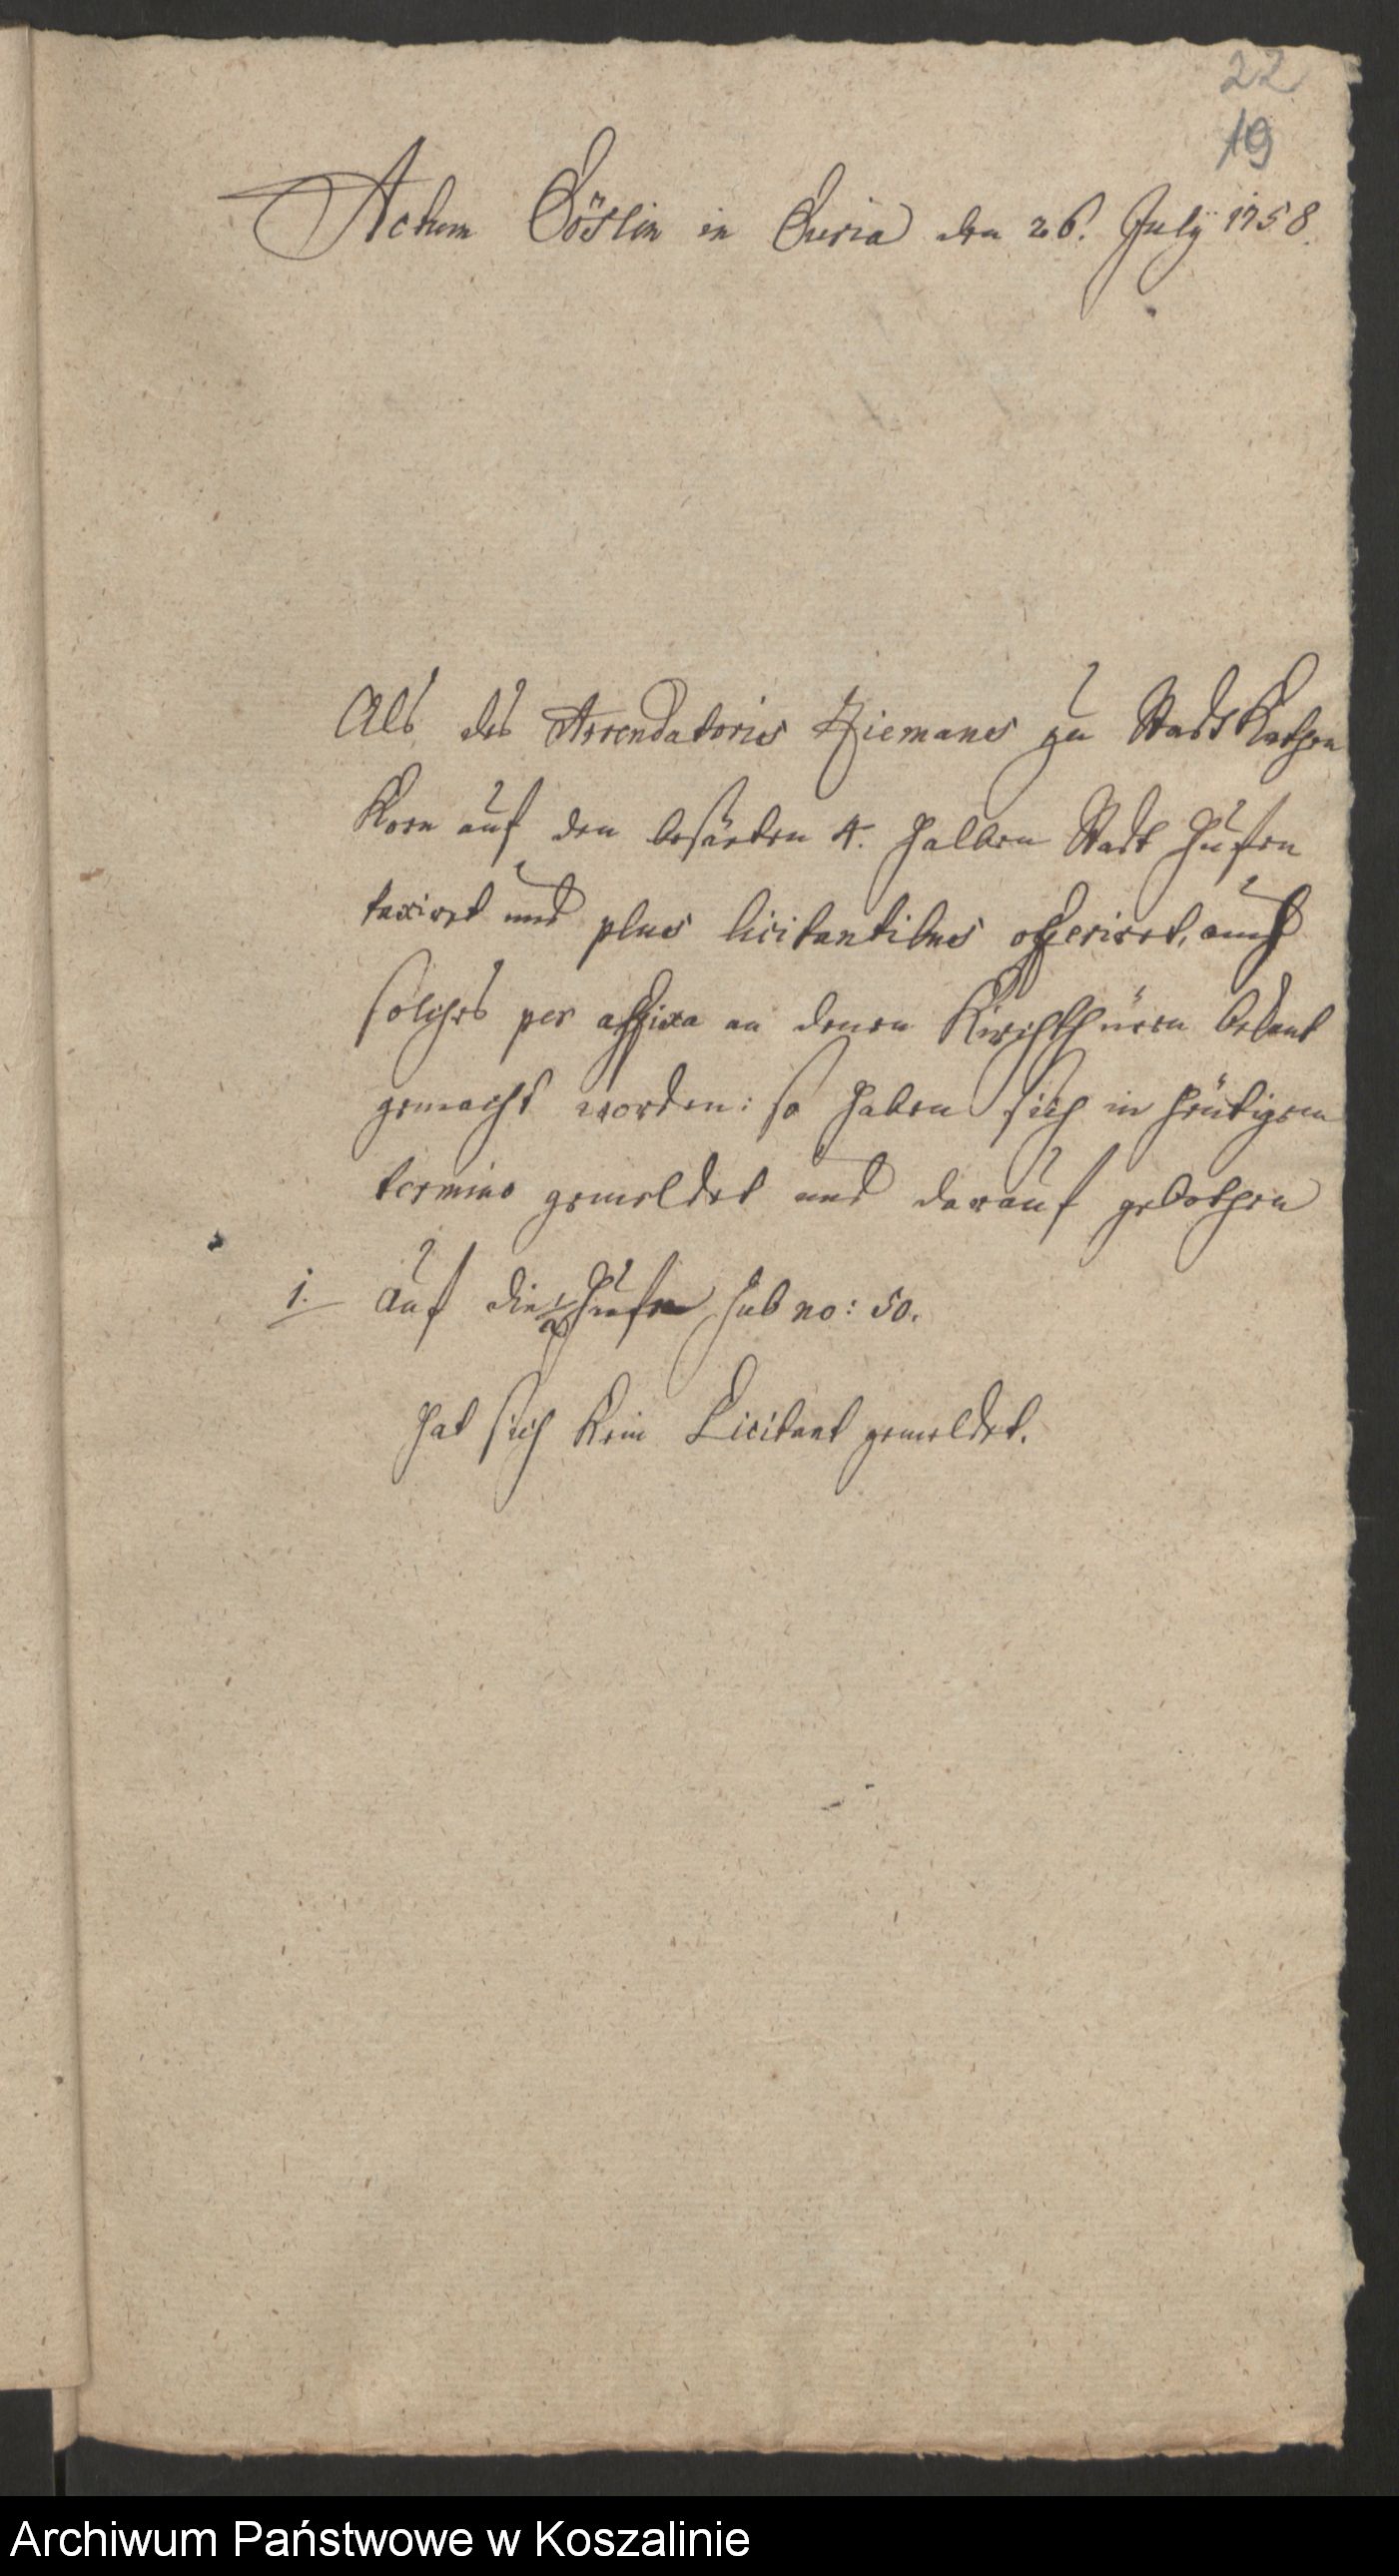 22
19
Actum Cöslin in Curia den 26. July 1758.
Als des Arrendatorius Ziemans zu Stadt
Korn auf den besäeten 4. halben Stadt Hufen
taxiret und plus licitantibus offeriret, auch
solches per affixa an denen Kirchthüren bekant
gemacht worden: so haben sich in heütigem
termino gemeldet und darauf gebothen
1. Auf die 1/2 Hufe sub no: 50.
hat sich kein Licitant gemeldet.
Archiwum Państwowe w Koszalinie